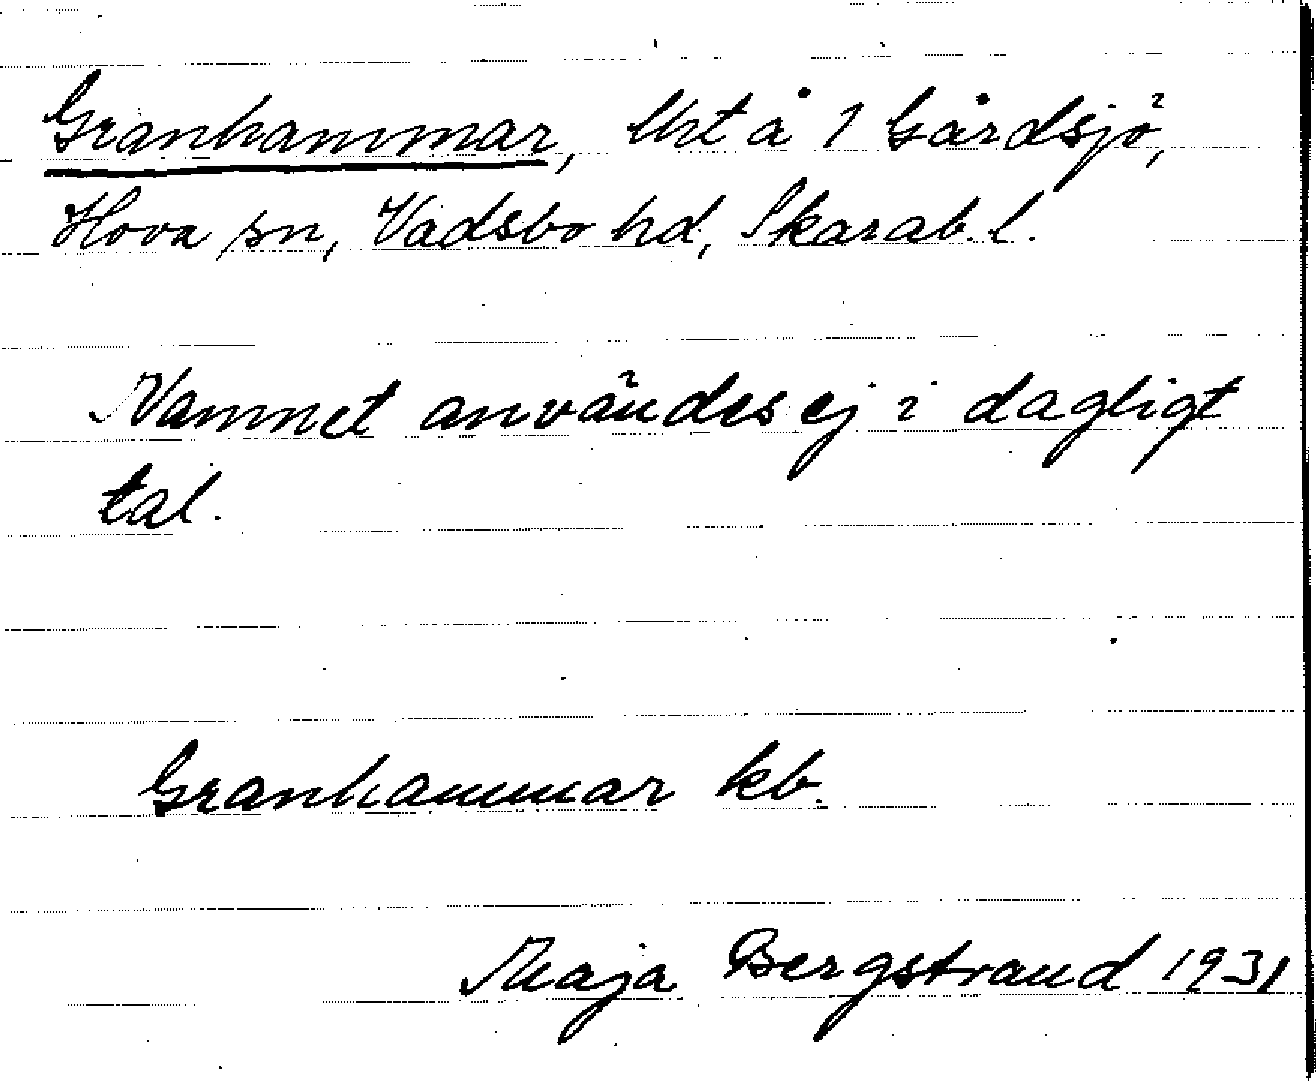 Granhammar, Urt å 1 Gårdsjö,
Hova sn, Vadsbo hd, Skarab. l.
Namnet användes ej i dagligt
tal.
Granhammar kb.
Maja Bergstrand 1931